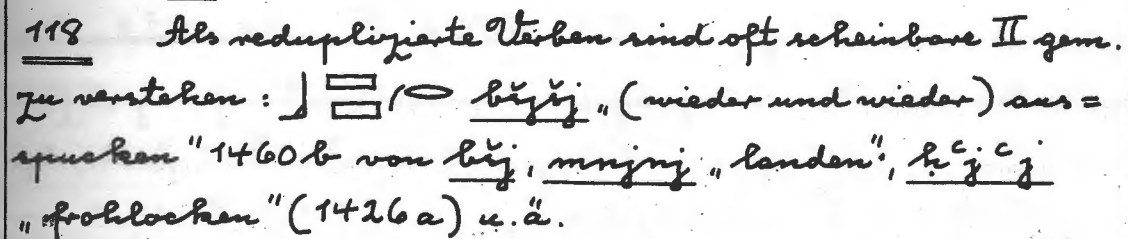 118 Als reduplizierte Verben sind oft scheinbare II gem.
zu verstehen: 𓃀𓈙𓈙 bšjšj „(wieder und wieder) aus=
spucken" 1460b von bšj, mnjnj „landen", ḥꜥjꜥj
„frohlocken" (1426a) u.ä.